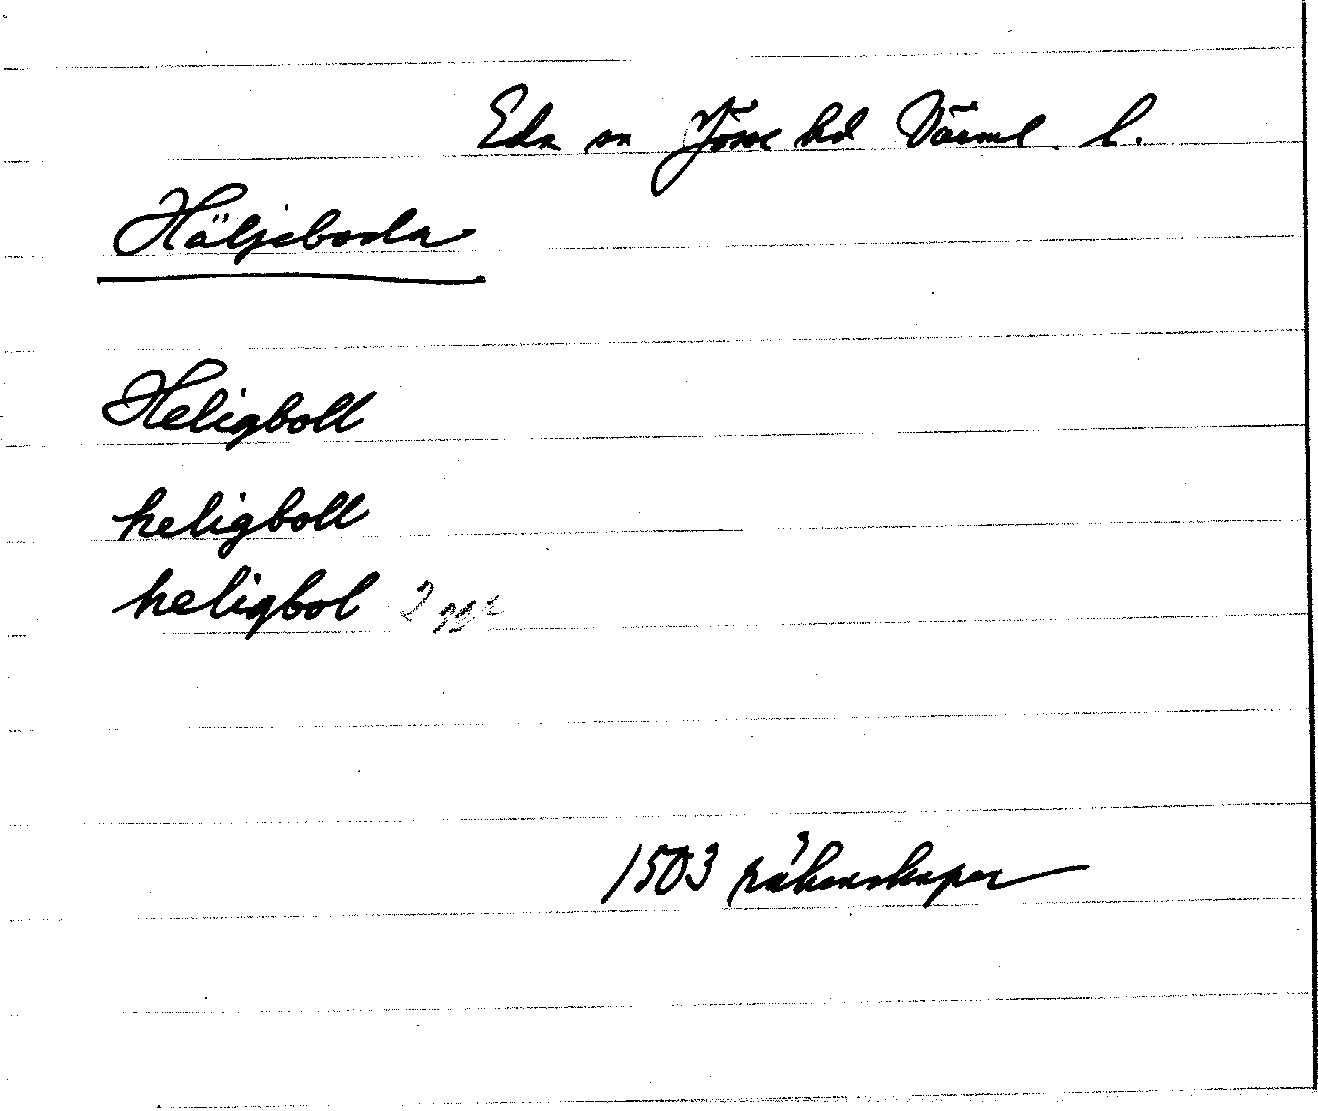 Eda sn Jösse hd Värml. l.
Häljeboda
Heligboll
heligboll
heligbol 2 ggr
1503 räkenskaper